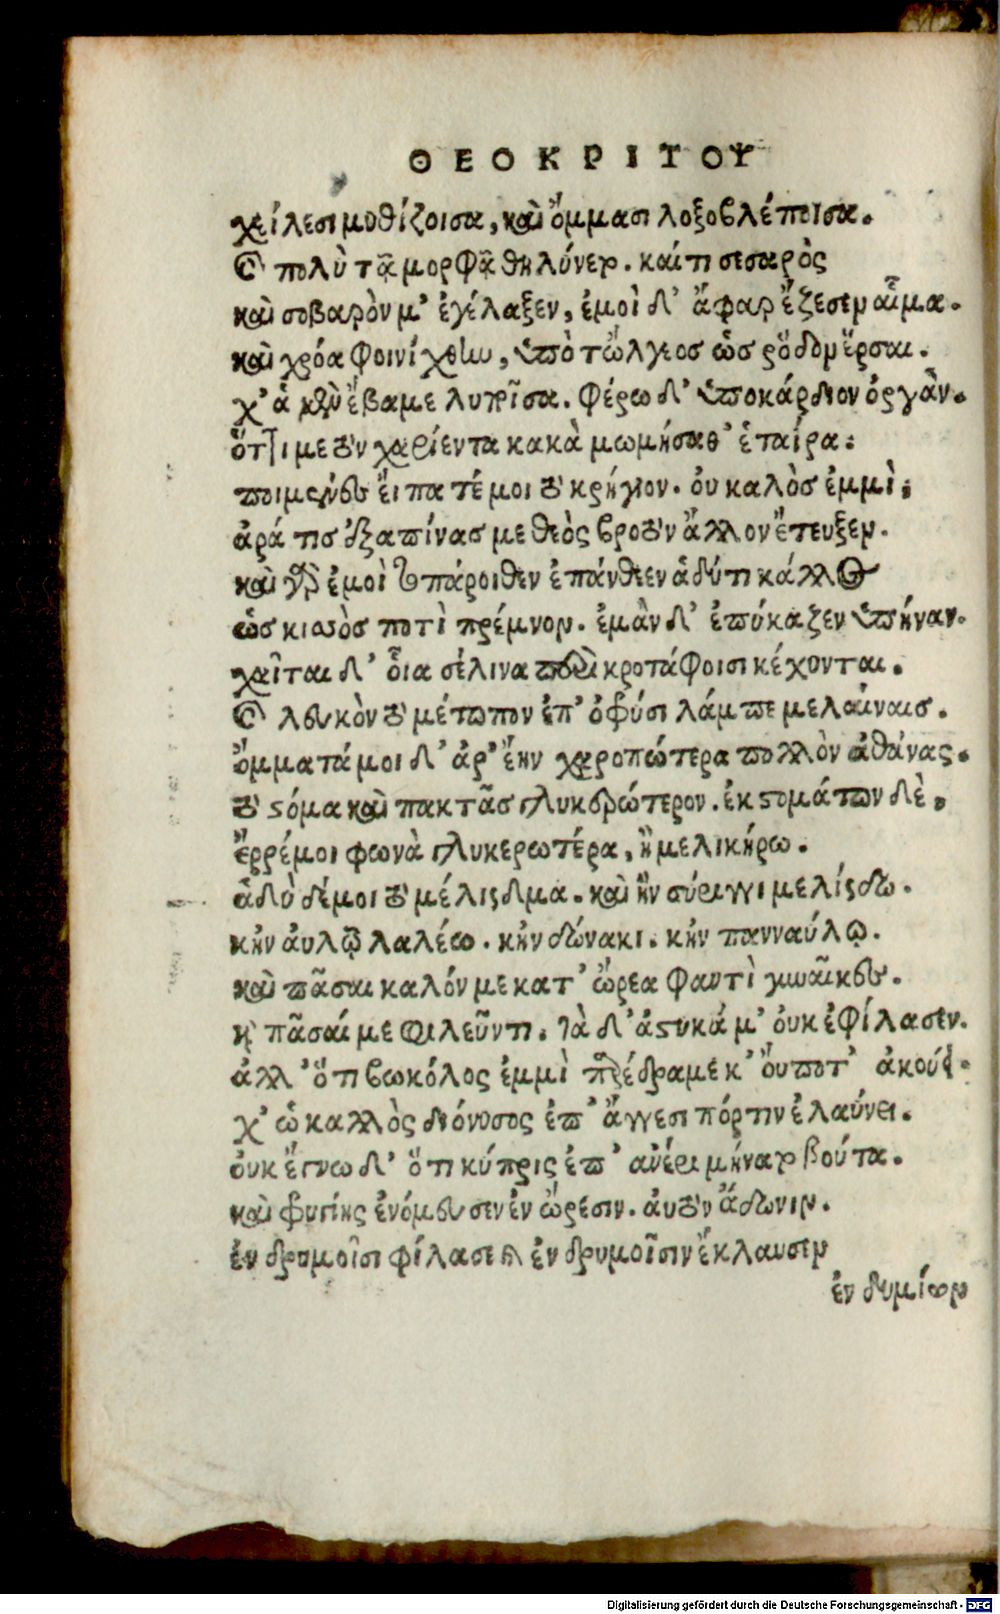 ΘΕΟΚΡΙΤΟΥ
χείλεσι μυθίζοισα, καὶ ὄμμασι λοξοβλέποισα.
Καὶ πολὺ τᾷ μορφᾷ θηλύνετ. καίτι σεσαρὸς
καὶ σοβαρὸν μ' ἐγέλαξεν, ἐμοὶ δ' ἄφαρ ἔζεσεν αἷμα.
καὶ χρόα φοινίχθην, ὑπὸ τὤλγεος ὡς ῥόδον ἕρσαι.
χ' ἁ μὲν ἔβα με λιποῖσα. φέρω δ' ὑποκάρδιον ὀργὰν.
ὅττι με τὸν χαρίεντα κακὰ μωμήσαθ' ἑταίρα:
ποιμένες εἴπατέ μοι τὸ κρήγυον. οὐ καλὸς ἐμμὶ;
ἀρά τις ἐξαπίνας με θεὸς βροτὸν ἄλλον ἔτευξεν.
καὶ γὰρ ἐμοὶ τοπάροιθεν ἐπάνθεεν ἁδύ τι κάλλος
ὡς κισσὸς ποτὶ πρέμνον. ἐμὰν δ' ἐπύκαζεν ὑπήναν.
χαῖται δ' οἷα σέλινα περὶ κροτάφοισι κέχυνται.
Καὶ λευκὸν τὸ μέτωπον ἐπ' ὀφρύσι λάμπε μελαίναις.
ὄμματά μοι δ' ἀρ' ἔην χαροπώτερα πολλὸν ἀθάνας.
τὸ στόμα καὶ πακτᾶς γλυκερώτερον. ἐκ στομάτων δὲ,
ἔρρέ μοι φωνὰ γλυκερωτέρα, ἢ μελικήρω.
ἁδὺ δέ μοι τὸ μέλισδμα. καὶ ἢν σύριγγι μελίσδω.
κἢν ἀυλῷ λαλέω. κἢν δώνακι. κἢν πανναύλῳ.
καὶ πᾶσαι καλόν με κατ' ὤρεα φαντὶ γυναῖκες.
κ' πᾶσαί με φιλεῦντι. τὰ δ' ἀστυκά μ' οὐκ ἐφίλασεν.
ἀλλ' ὅτι βωκόλος ἐμμὶ παρέδραμε κ' οὔποτ' ἀκούει.
χ' ὡ καλλὸς διόνυσος ἐπ' ἄγγεσι πόρτιν ἐλαύνει.
οὐκ ἔγνω δ' ὅτι κύπρις ἐπ' ἀνέρι μήνατο βούτα.
καὶ φρυγίης ἐνόμευσεν ἐν ὤρεσιν. ἀυτὸν ἄδωνιν.
ἐν δρυμοῖσι φίλασε καὶ ἐν δρυμοῖσιν ἔκλαυσεν
ἐν δυμίων
Digitalisierung gefördert durch die Deutsche Forschungsgemeinschaft - DFG